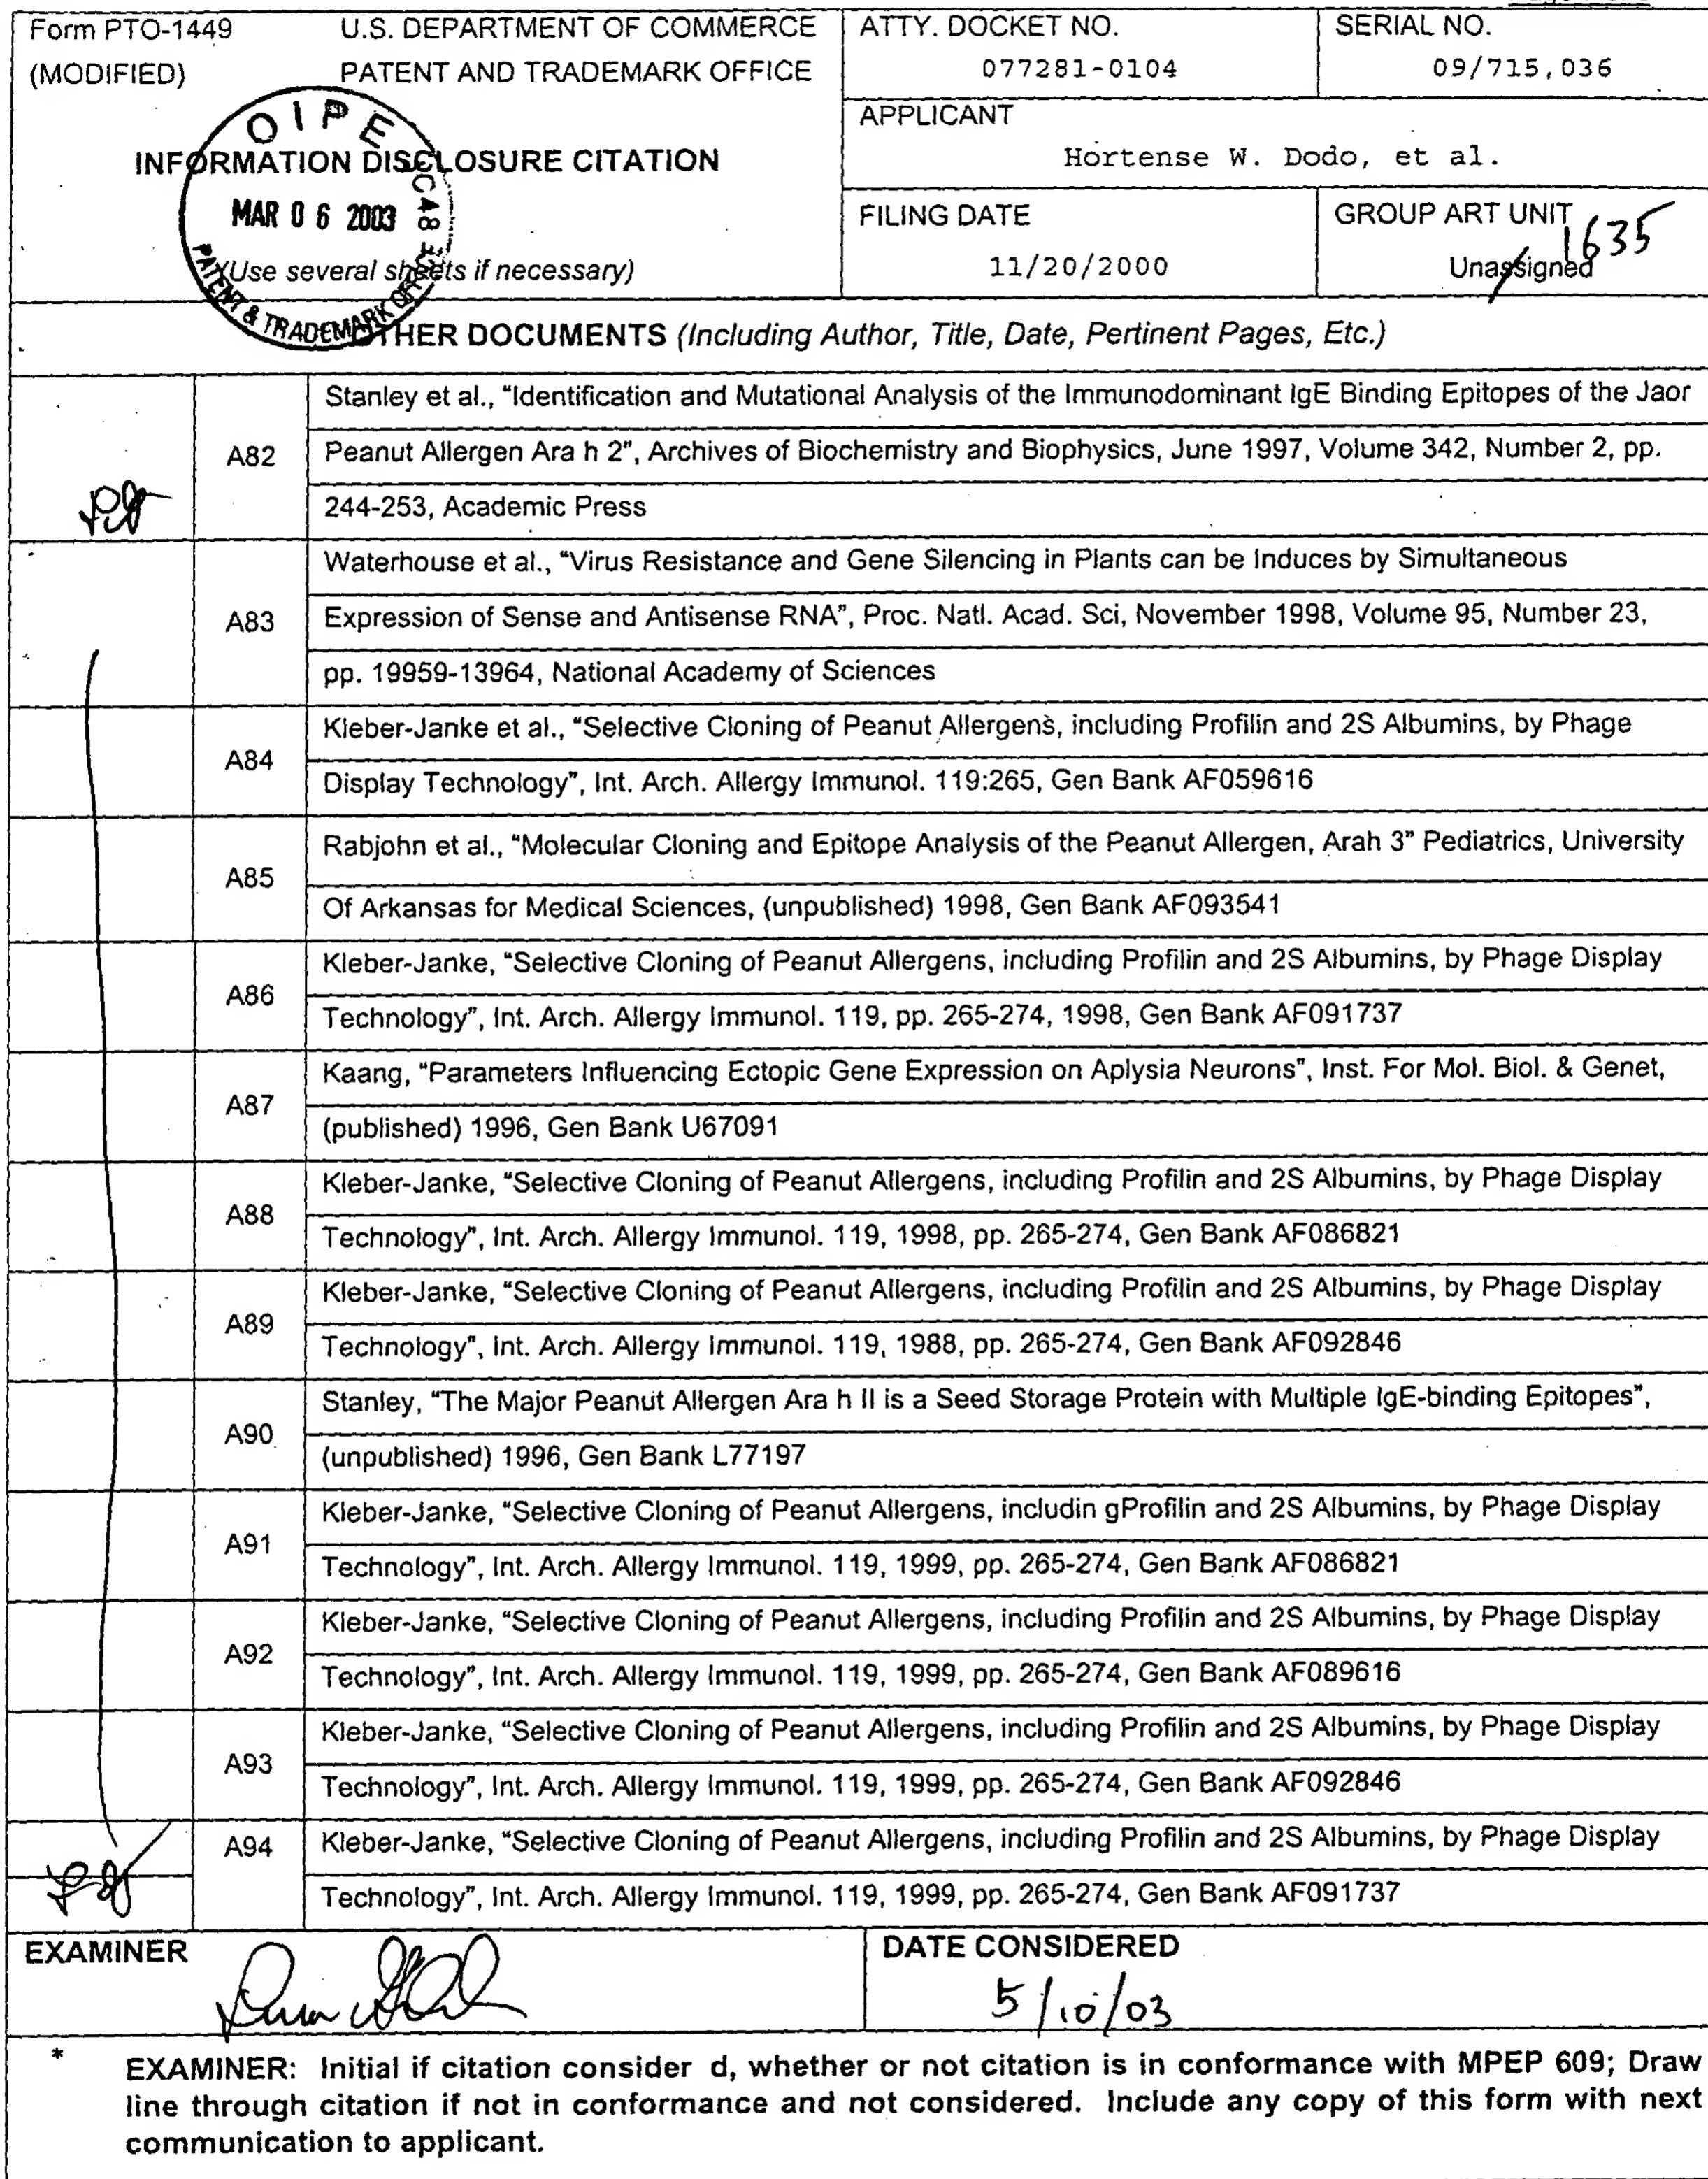 Form PTO-1449 U.S. DEPARTMENT OF COMMERCE
(MODIFIED) PATENT AND TRADEMARK OFFICE
ATTY. DOCKET NO.
077281-0104
SERIAL NO.
09/715,036
OIPE
MAR 06 2003
PATENT & TRADEMARK OFFICE
INFORMATION DISCLOSURE CITATION
(Use several sheets if necessary)
APPLICANT
Hortense W. Dodo, et al.
FILING DATE
11/20/2000
GROUP ART UNIT
1635
Unassigned
OTHER DOCUMENTS (Including Author, Title, Date, Pertinent Pages, Etc.)
A82
Stanley et al., “Identification and Mutational Analysis of the Immunodominant IgE Binding Epitopes of the Jaor
Peanut Allergen Ara h 2”, Archives of Biochemistry and Biophysics, June 1997, Volume 342, Number 2, pp.
244-253, Academic Press
A83
Waterhouse et al., “Virus Resistance and Gene Silencing in Plants can be Induces by Simultaneous
Expression of Sense and Antisense RNA”, Proc. Natl. Acad. Sci, November 1998, Volume 95, Number 23,
pp. 19959-13964, National Academy of Sciences
A84
Kleber-Janke et al., “Selective Cloning of Peanut Allergens, including Profilin and 2S Albumins, by Phage
Display Technology”, Int. Arch. Allergy Immunol. 119:265, Gen Bank AF059616
A85
Rabjohn et al., “Molecular Cloning and Epitope Analysis of the Peanut Allergen, Arah 3” Pediatrics, University
Of Arkansas for Medical Sciences, (unpublished) 1998, Gen Bank AF093541
A86
Kleber-Janke, “Selective Cloning of Peanut Allergens, including Profilin and 2S Albumins, by Phage Display
Technology”, Int. Arch. Allergy Immunol. 119, pp. 265-274, 1998, Gen Bank AF091737
A87
Kaang, “Parameters Influencing Ectopic Gene Expression on Aplysia Neurons”, Inst. For Mol. Biol. & Genet,
(published) 1996, Gen Bank U67091
A88
Kleber-Janke, “Selective Cloning of Peanut Allergens, including Profilin and 2S Albumins, by Phage Display
Technology”, Int. Arch. Allergy Immunol. 119, 1998, pp. 265-274, Gen Bank AF086821
A89
Kleber-Janke, “Selective Cloning of Peanut Allergens, including Profilin and 2S Albumins, by Phage Display
Technology”, Int. Arch. Allergy Immunol. 119, 1988, pp. 265-274, Gen Bank AF092846
A90
Stanley, “The Major Peanut Allergen Ara h II is a Seed Storage Protein with Multiple IgE-binding Epitopes”,
(unpublished) 1996, Gen Bank L77197
A91
Kleber-Janke, “Selective Cloning of Peanut Allergens, includin gProfilin and 2S Albumins, by Phage Display
Technology”, Int. Arch. Allergy Immunol. 119, 1999, pp. 265-274, Gen Bank AF086821
A92
Kleber-Janke, “Selective Cloning of Peanut Allergens, including Profilin and 2S Albumins, by Phage Display
Technology”, Int. Arch. Allergy Immunol. 119, 1999, pp. 265-274, Gen Bank AF089616
A93
Kleber-Janke, “Selective Cloning of Peanut Allergens, including Profilin and 2S Albumins, by Phage Display
Technology”, Int. Arch. Allergy Immunol. 119, 1999, pp. 265-274, Gen Bank AF092846
A94
Kleber-Janke, “Selective Cloning of Peanut Allergens, including Profilin and 2S Albumins, by Phage Display
Technology”, Int. Arch. Allergy Immunol. 119, 1999, pp. 265-274, Gen Bank AF091737
EXAMINER
DATE CONSIDERED
5/10/03
* EXAMINER: Initial if citation consider d, whether or not citation is in conformance with MPEP 609; Draw
line through citation if not in conformance and not considered. Include any copy of this form with next
communication to applicant.